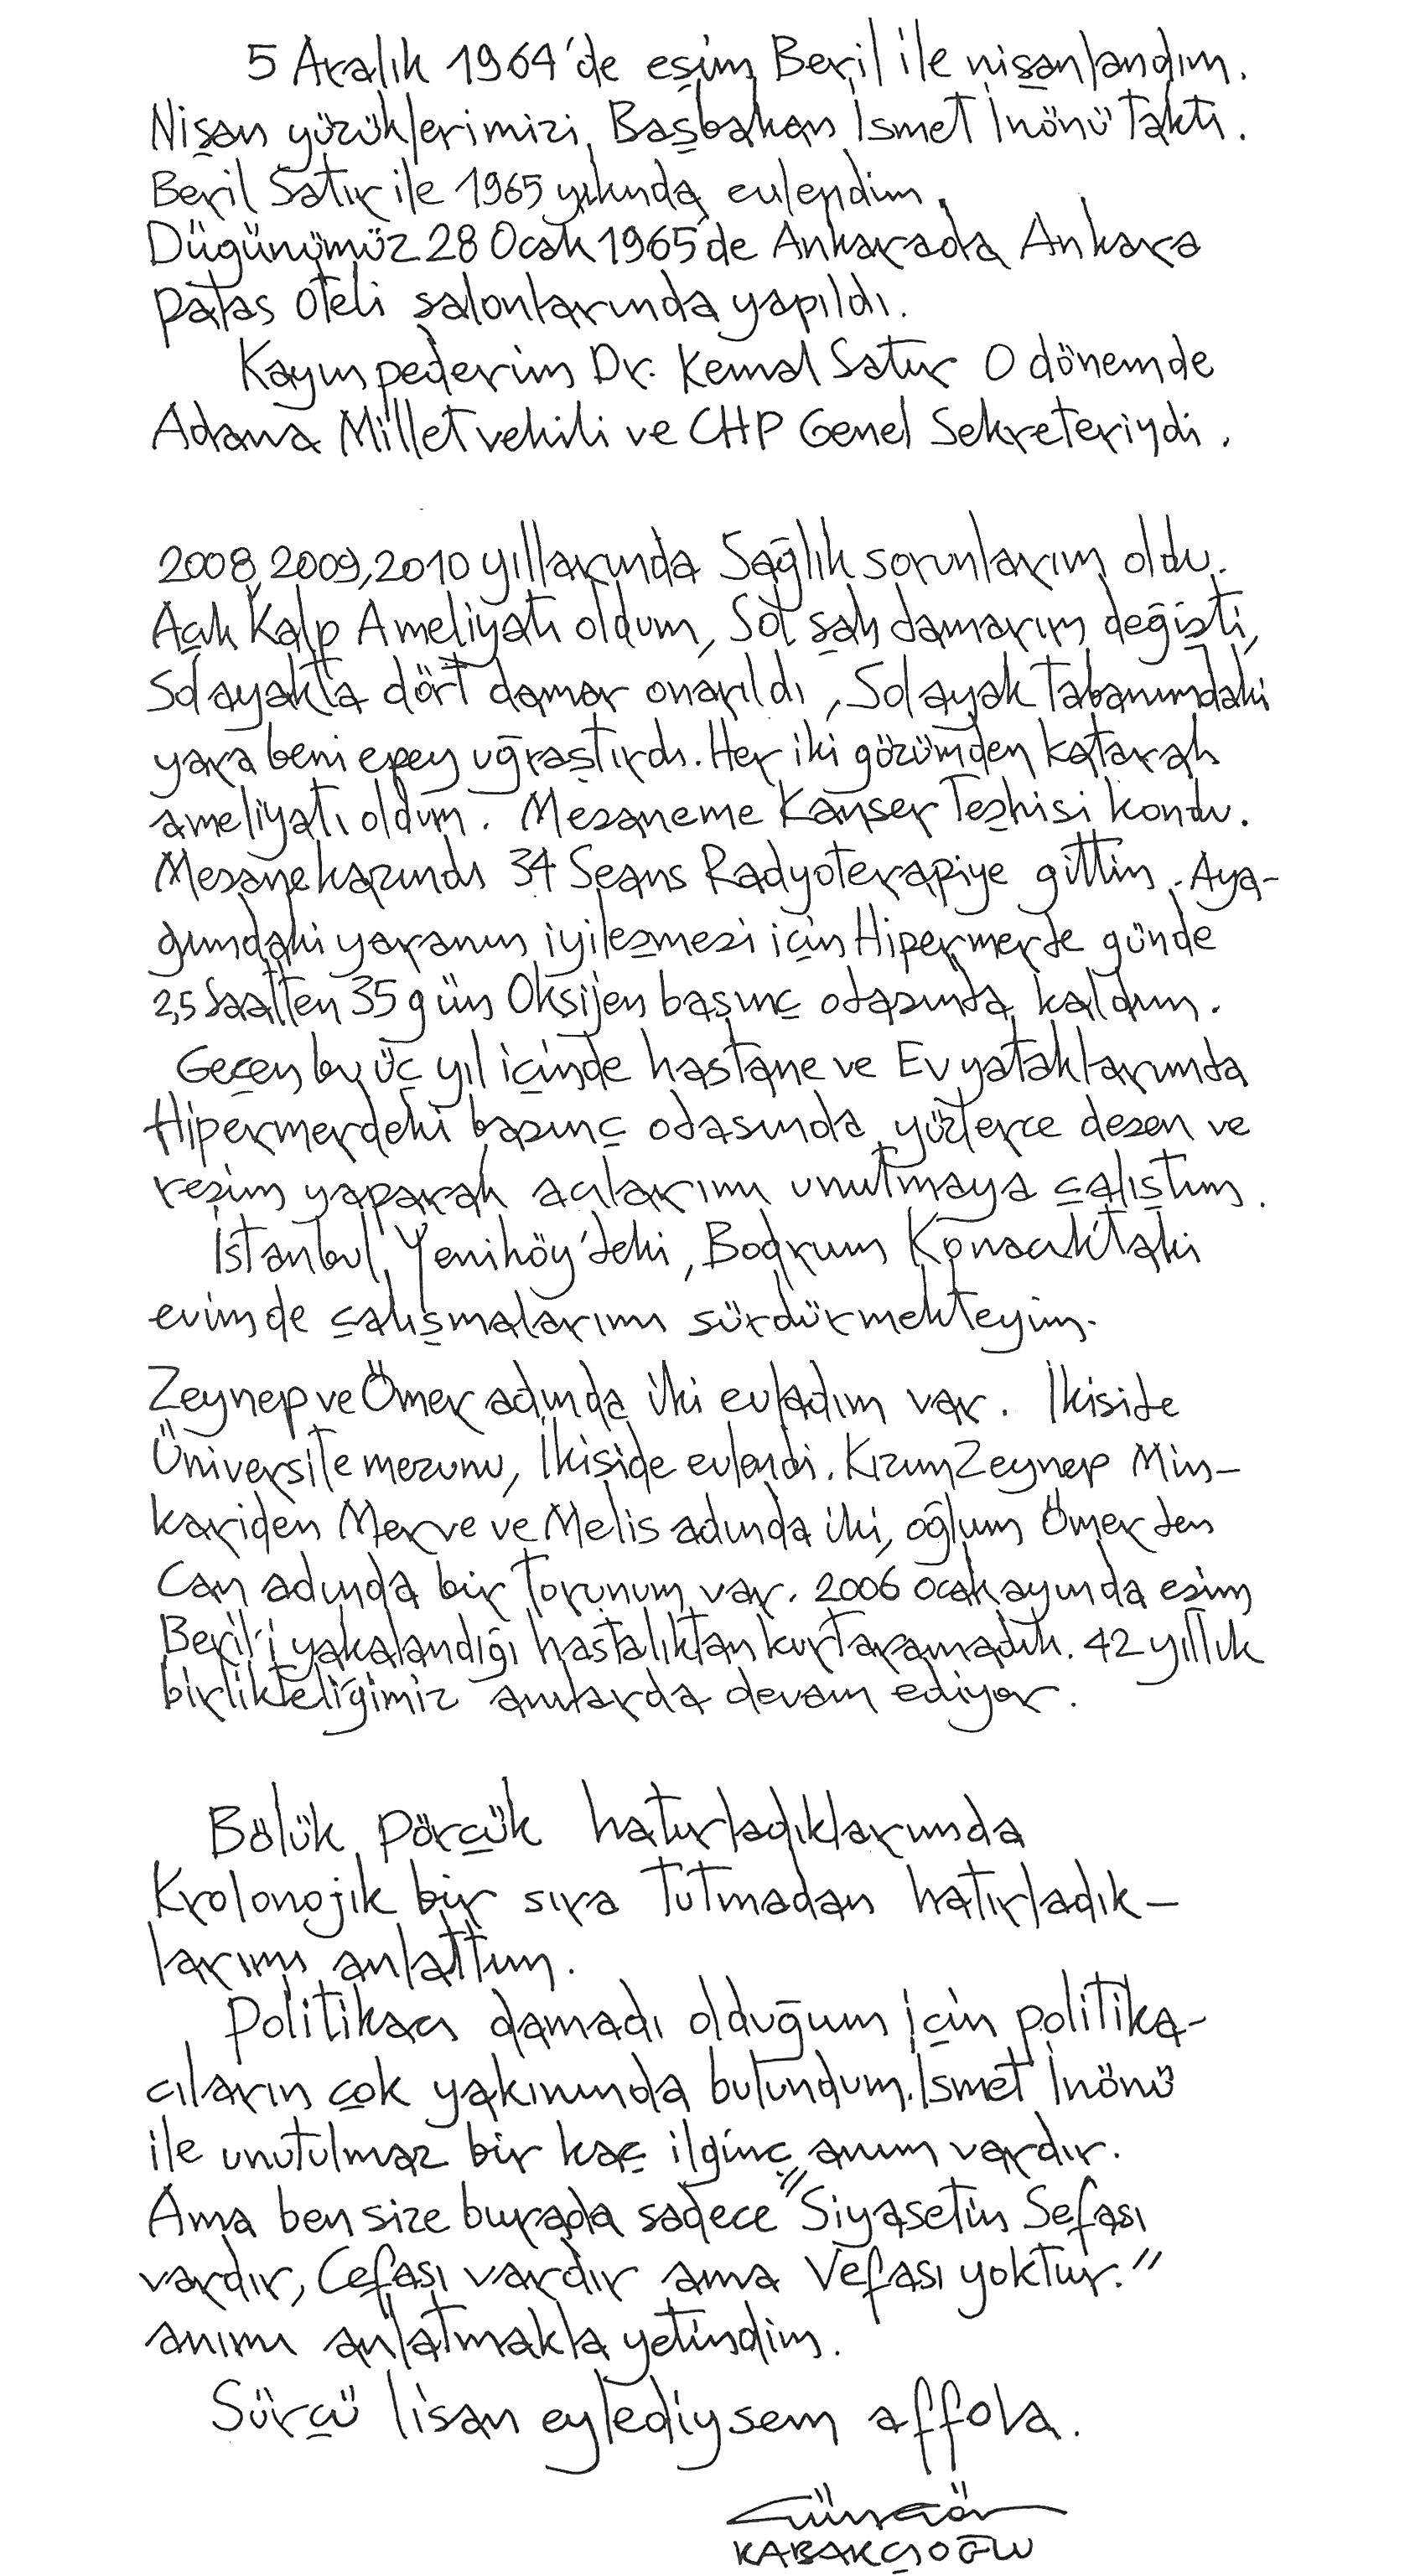 5 Aralık 1964'de eşim Beril ile nişanlandım.
Nişan yüzüklerimizi Başbakan İsmet İnönü taktı.
Beril Satır ile 1965 yılında evlendim.
Düğünümüz 28 Ocak 1965'de Ankarada Ankara
Palas Oteli salonlarında yapıldı.
Kayınpederim Dr. Kemal Satır O dönemde
Adana Milletvekili ve CHP Genel Sekreteriydi.
2008, 2009, 2010 yıllarında Sağlık sorunlarım oldu.
Açık Kalp Ameliyatı oldum, Sol şah damarım değişti,
Sol ayakta dört damar onarıldı, Sol ayak tabanımdaki
yara beni epey uğraştırdı. Her iki gözümden katarak
ameliyatı oldum. Mesaneme Kanser Teşhisi kondu.
Mesane kazındı 34 Seans Radyoterapiye gittim. Aya-
ğımdaki yaranın iyileşmesi için Hipermerde günde
2,5 Saatten 35 gün Oksijen basınç odasında kaldım.
Geçen bu üç yıl içinde hastane ve Ev yataklarında
Hipermerdeki basınç odasında yüzlerce desen ve
resim yaparak acılarımı unutmaya çalıştım.
İstanbul Yeniköy'deki, Bodrum Konacık'taki
evimde çalışmalarımı sürdürmekteyim.
Zeynep ve Ömer adında iki evladım var. İkiside
Üniversite mezunu, İkiside evlendi. Kızım Zeynep Min-
kariden Merve ve Melis adında iki, oğlum Ömerden
Can adında bir Torunum var. 2006 ocak ayında eşim
Beril'i yakalandığı hastalıktan kurtaramadık. 42 yıllık
birlikteliğimiz anılarda devam ediyor.
Bölük Pörçük hatırladıklarımda
Krolonojik bir sıra Tutmadan hatırladık-
larımı anlattım.
Politikacı damadı olduğum için politika-
cıların çok yakınında bulundum. İsmet İnönü
ile unutulmaz bir kaç ilginç anım vardır.
Ama ben size burada sadece "Siyasetin Sefası
vardır, Cefası vardır ama Vefası yoktur."
anımı anlatmakla yetindim.
Sürçü lisan eylediysem affola.
Güngör
KABAKÇIOĞLU